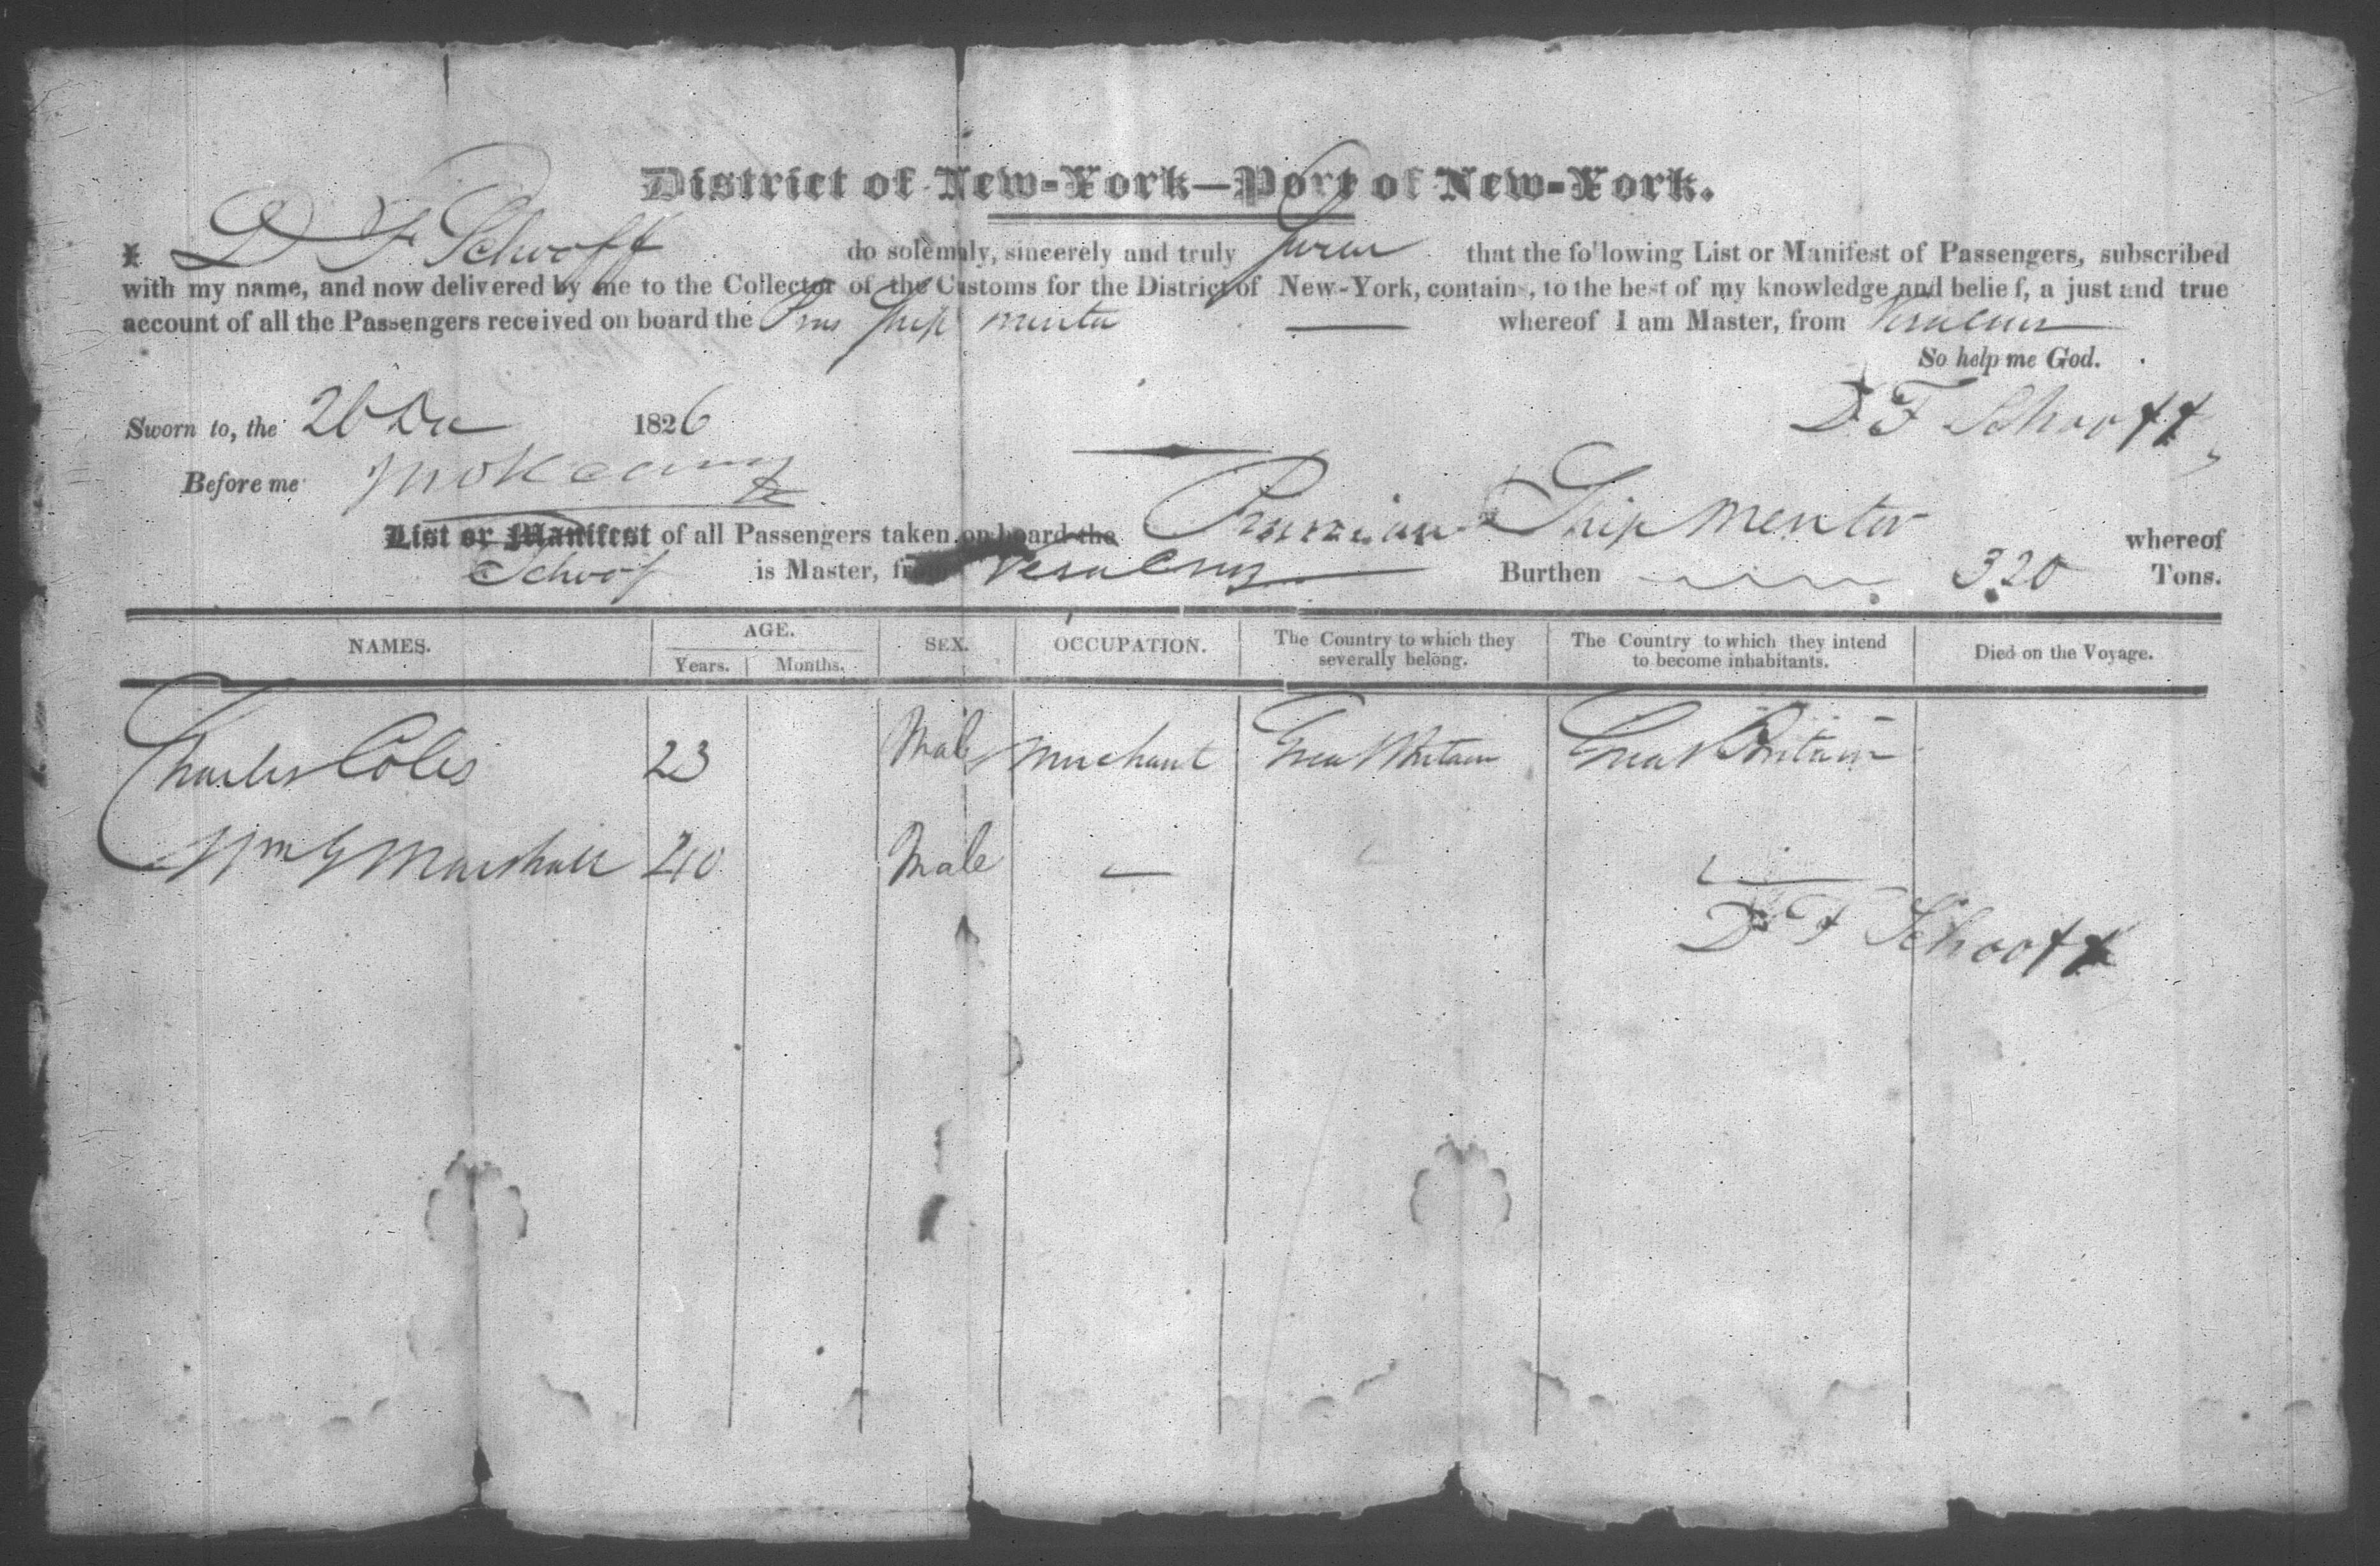 District of New-York—Port of New-York.
I D F Schooff do solemnly, sincerely and truly swear that the following List or Manifest of Passengers, subscribed
with my name, and now delivered by me to the Collector of the Customs for the District of New-York, contains, to the best of my knowledge and belief, a just and true
account of all the Passengers received on board the Prus Ship Mentor whereof I am Master, from Vera Cruz
So help me God.
D F Schooff
Sworn to, the 26 Dec 1826
Before me
List or Manifest of all Passengers taken on board the Prussian Ship Mentor whereof
Schoof is Master, from Vera Cruz Burthen 320 Tons.
NAMES. AGE. SEX. OCCUPATION. The Country to which they severally belong. The Country to which they intend to become inhabitants. Died on the Voyage.
Years. Months.
Charles Coles 23 Male Merchant Great Britain Great Britain
Wm G Marshall 40 Male —
D F Schooff